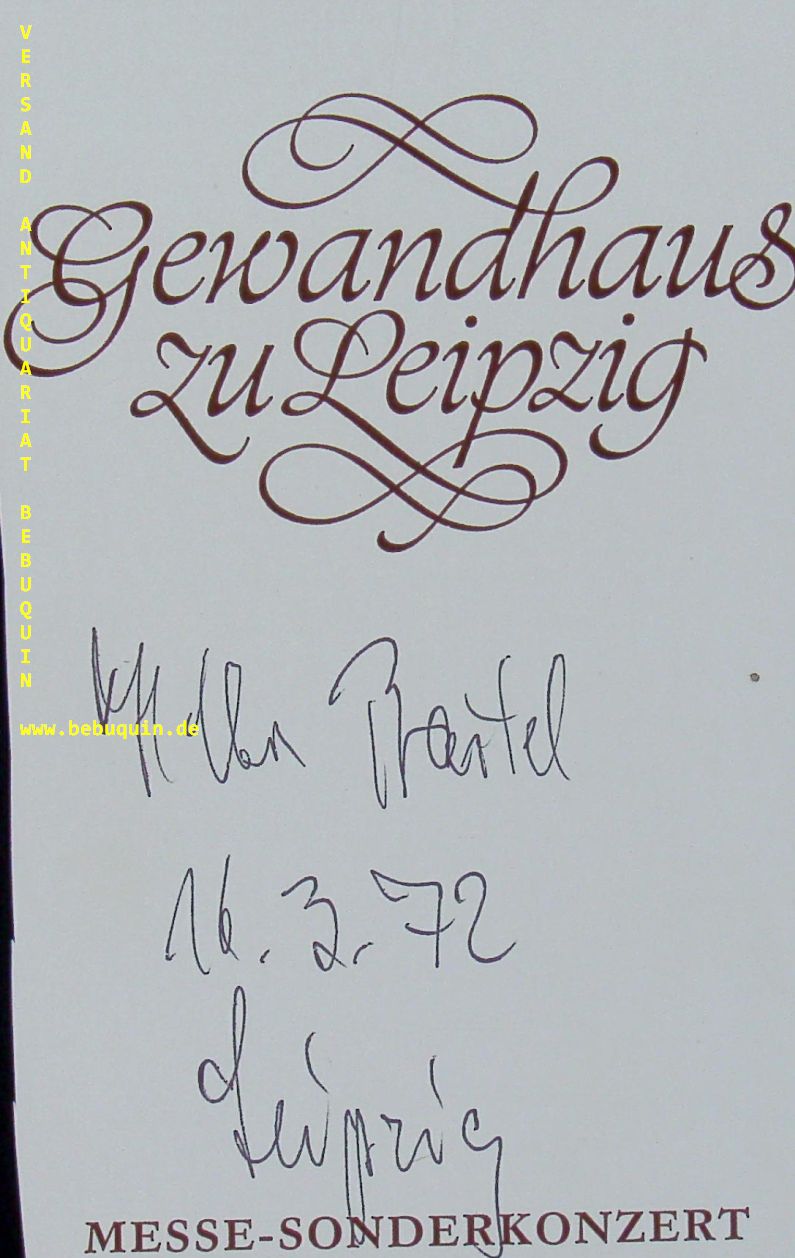 VERSAND ANTIQUARIAT BEBUQUIN
www.bebuquin.de
Gewandhaus
zu Leipzig
Bartel
16.3.72
Leipzig
MESSE-SONDERKONZERT